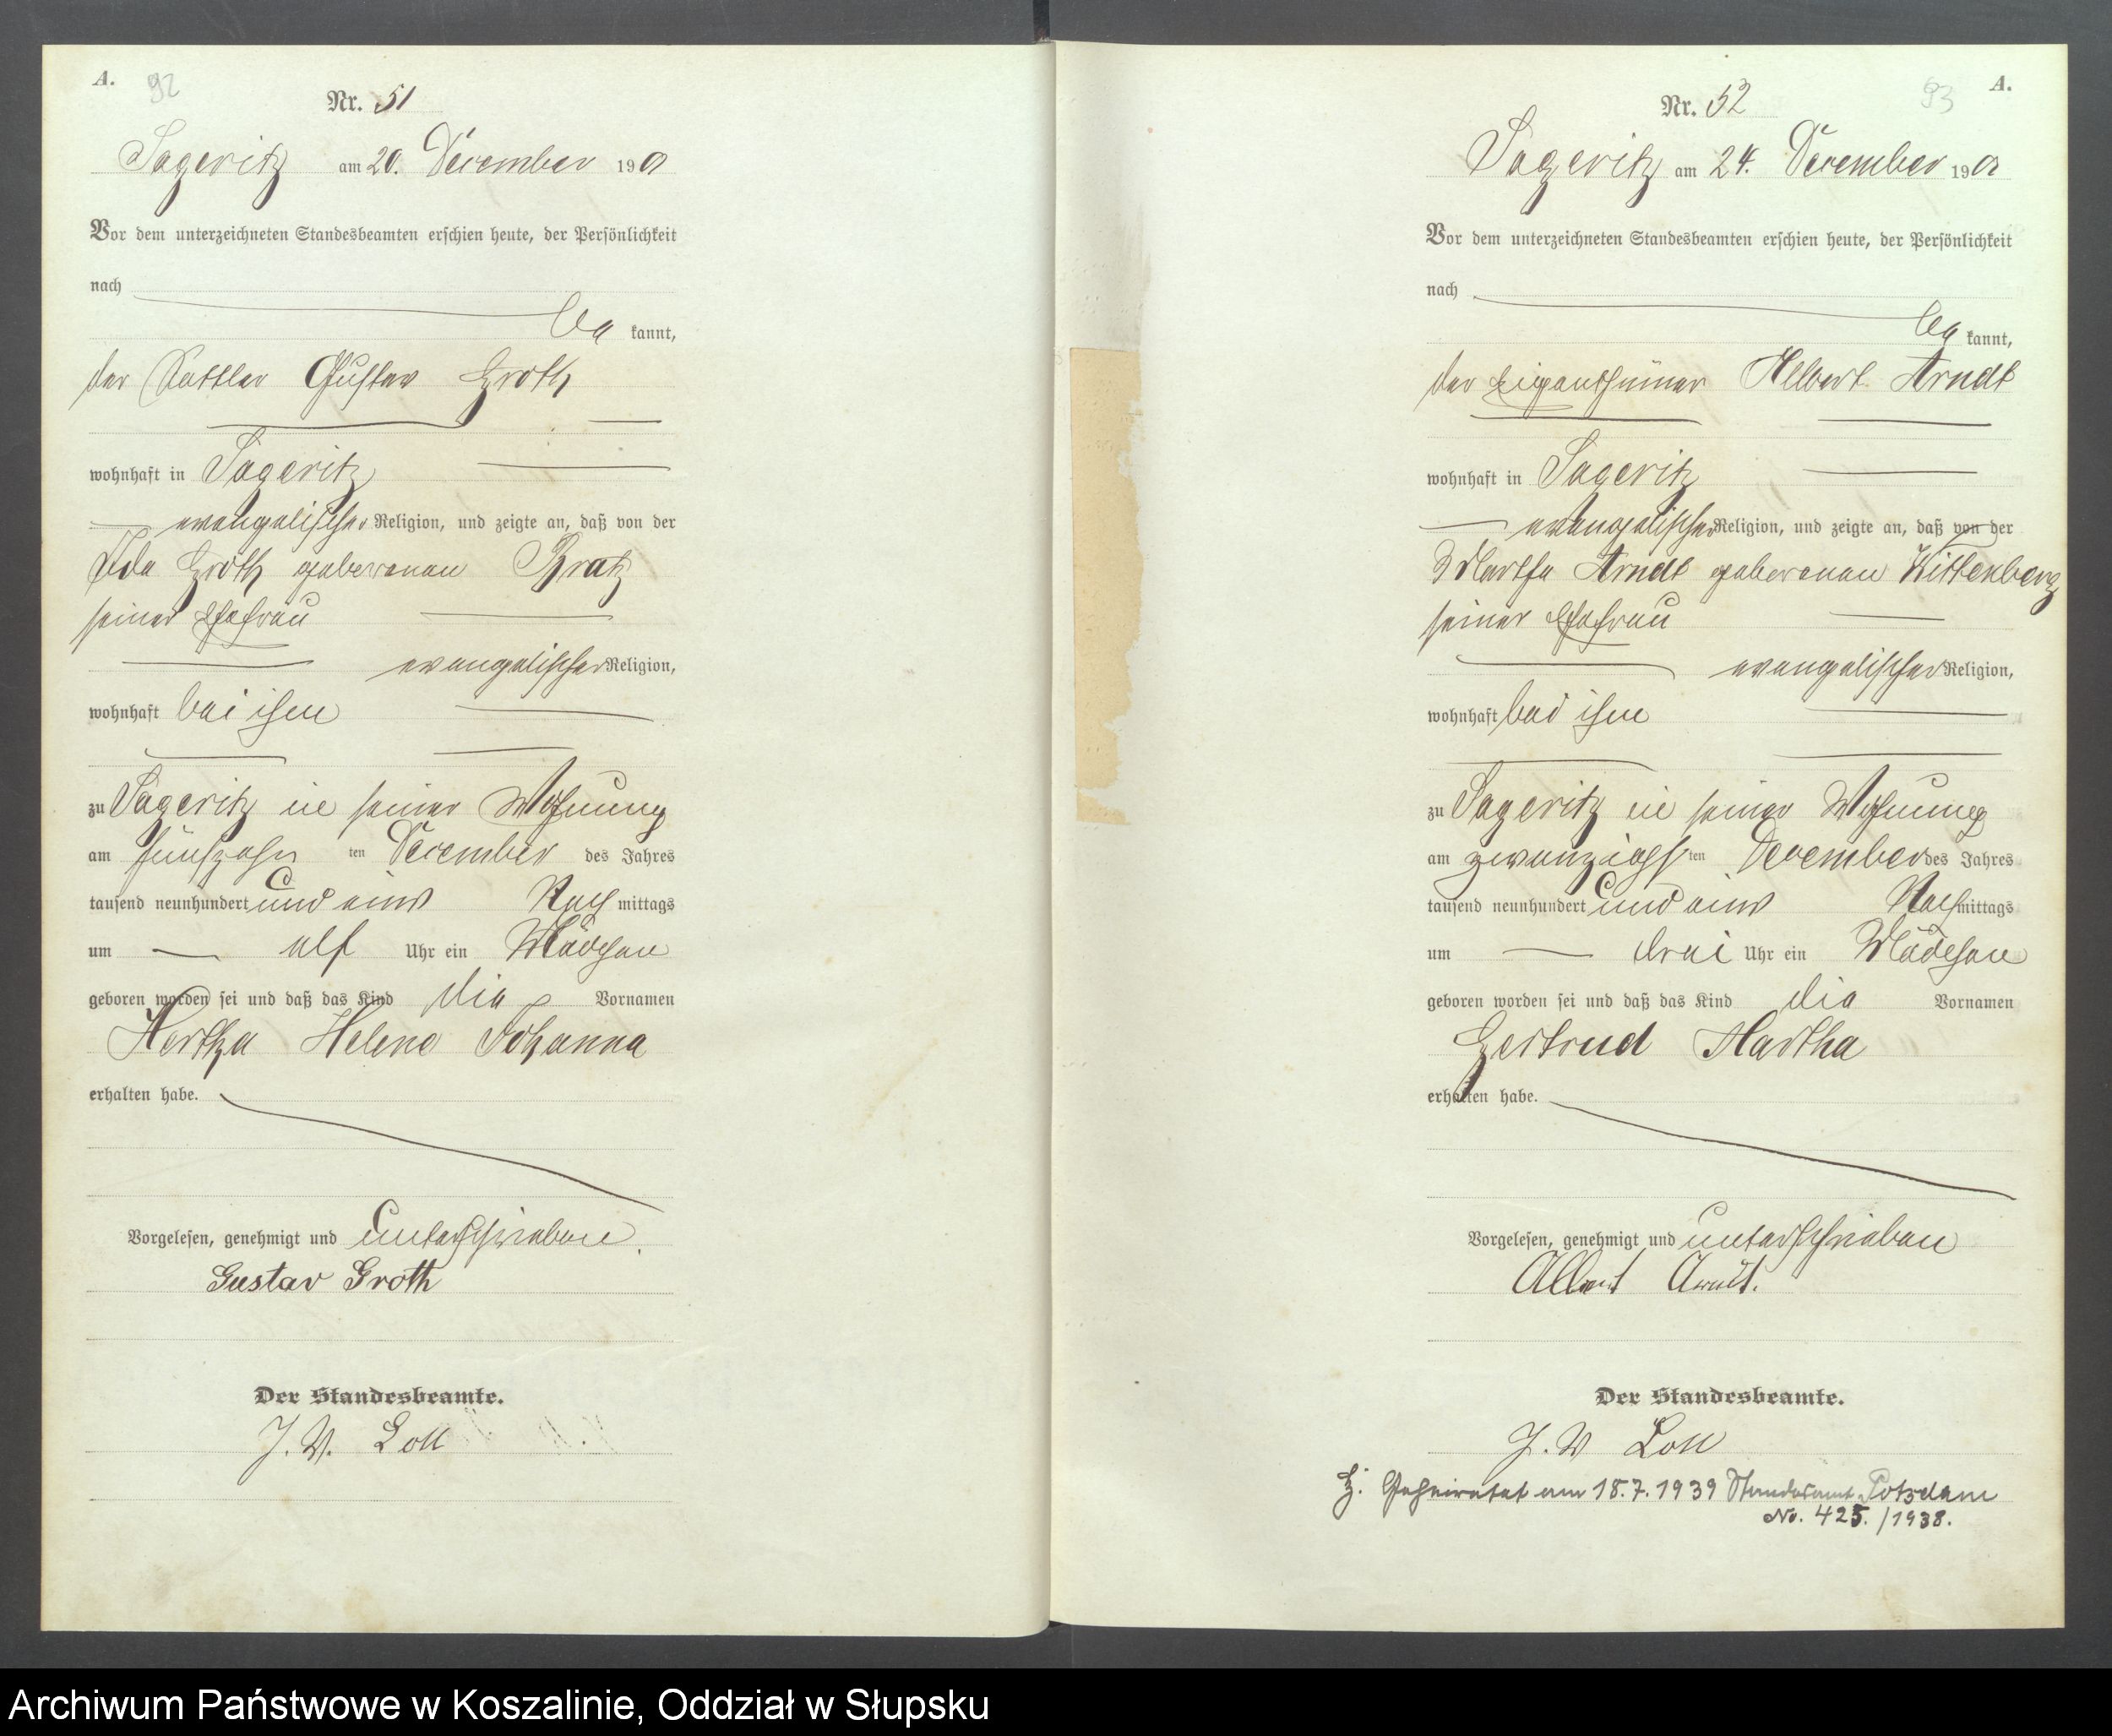 A. 92
Nr. 51
Sageritz am 20. December 1901
Vor dem unterzeichneten Standesbeamten erschien heute, der Persönlichkeit
nach
be kannt,
der Sattler Gustav Groth
wohnhaft in Sageritz
evangelischer Religion, und zeigte an, daß von der
Ida Groth geborenen Bratz
seiner Ehefrau
evangelischer Religion,
wohnhaft bei ihm
zu Sageritz in seiner Wohnung
am fünfzehn ten December des Jahres
tausend neunhundert und eins Nach mittags
um elf Uhr ein Mädchen
geboren worden sei und daß das Kind die Vornamen
Hertha Helene Johanna
erhalten habe.
Vorgelesen, genehmigt und unterschrieben.
Gustav Groth
Der Standesbeamte.
J. V. Loll
93 A.
Nr. 52
Sageritz am 24. December 1901
Vor dem unterzeichneten Standesbeamten erschien heute, der Persönlichkeit
nach
be kannt,
der Eigenthümer Albert Arndt
wohnhaft in Sageritz
evangelischer Religion, und zeigte an, daß von der
Martha Arndt geborenen Wittenberg
seiner Ehefrau
evangelischer Religion,
wohnhaft bei ihm
zu Sageritz in seiner Wohnung
am zwanzigsten December des Jahres
tausend neunhundert und eins Nachmittags
um drei Uhr ein Mädchen
geboren worden sei und daß das Kind die Vornamen
Gertrud Martha
erhalten habe.
Vorgelesen, genehmigt und unterschrieben
Albert Arndt.
Der Standesbeamte.
J. V Loll
Geheiratet am 18.7.1939 Standesamt Potsdam
No. 425./1938.
Archiwum Państwowe w Koszalinie, Oddział w Słupsku